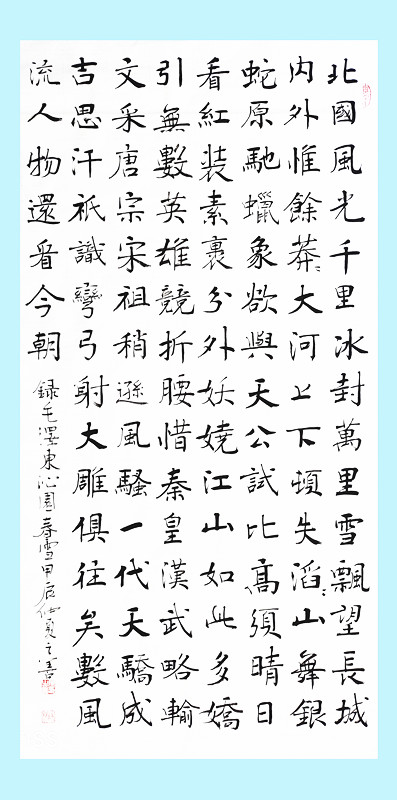 北國風光千里冰封萬里雪飄望長城
内外惟餘莽〻大河上下頓失滔〻山舞銀
蛇原馳蠟象欲與天公試比高須晴日
看紅裝素裹分外妖嬈江山如此多嬌
引無數英雄競折腰惜秦皇漢武略輸
文采唐宗宋祖稍遜風騷一代天驕成
吉思汗祇識彎弓射大雕俱往矣數風
流人物還看今朝
録毛澤東沁園春雪甲辰仲夏之善